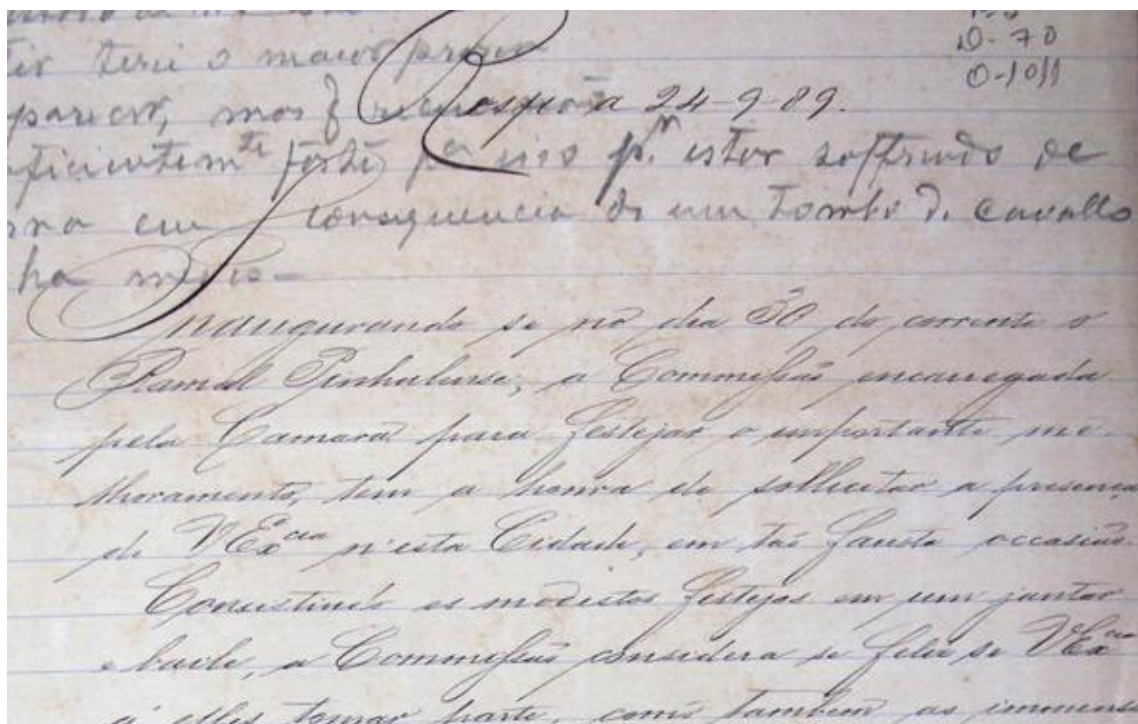 D-70
O-1011
teria o maior prazer
parecer, mas
24-9-89.
forte por isso pr. estar soffrendo de
em consequencia de um tombo de cavallo
ha
Inaugurando se no dia 30 do corrente o
Ramal Pinhalense, a Commissão encarregada
pela Camara para festejar o importante me-
lhoramento, tem a honra de sollicitar a presença
de V Ex.cia n'esta Cidade, em tão fausta occasião.
Consistindo os modestos festejos em um jantar
e baile, a Commissão considera se feliz se V Ex.cia
a' elles tomar parte, como tambem as